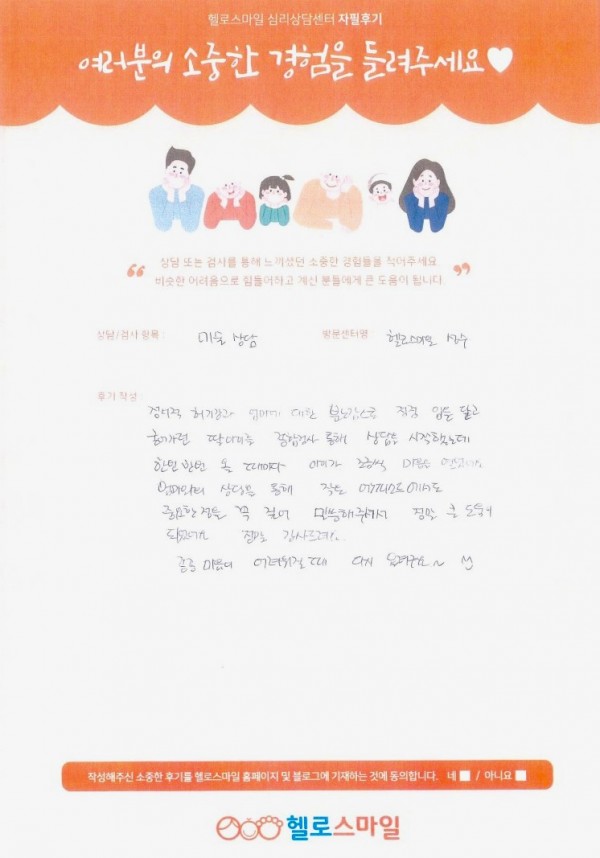 헬로스마일 심리상담센터 자필후기
여러분의 소중한 경험을 들려주세요♥
상담 또는 검사를 통해 느끼셨던 소중한 경험들을 적어주세요.
비슷한 어려움으로 힘들어하고 계신 분들에게 큰 도움이 됩니다.
상담/검사 항목 : 미술 상담
방문센터명 : 헬로스마일 성수
후기 작성 :
정서적 허기감과 엄마에 대한 분노감으로 직중 입을 닫고
딸아이를 종합검사 통해 상담을 시작했는데
한번 한번 올 때마다 아이가 조금씩 마음을 열었어요.
엄마와의 상담을 통해 작은 에서도
중요한 점들 꼭 짚어 말씀해주셔서 정말 큰 도움이
되었어요. 정말 감사드려요.
종종 마음이 어려워질 때 다시 올려구요~
작성해주신 소중한 후기를 헬로스마일 홈페이지 및 블로그에 기재하는 것에 동의합니다. 네 / 아니요
헬로스마일